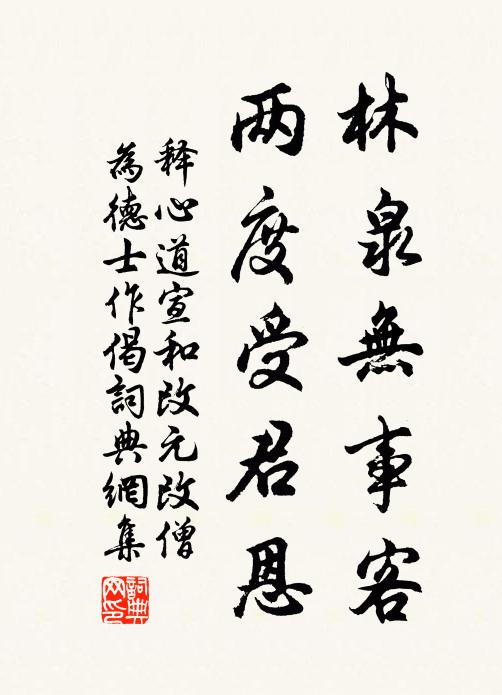 林泉無事客
两度受君恩
释心道宣和改元改僧
為德士作偈詞典網集
詞典
网印